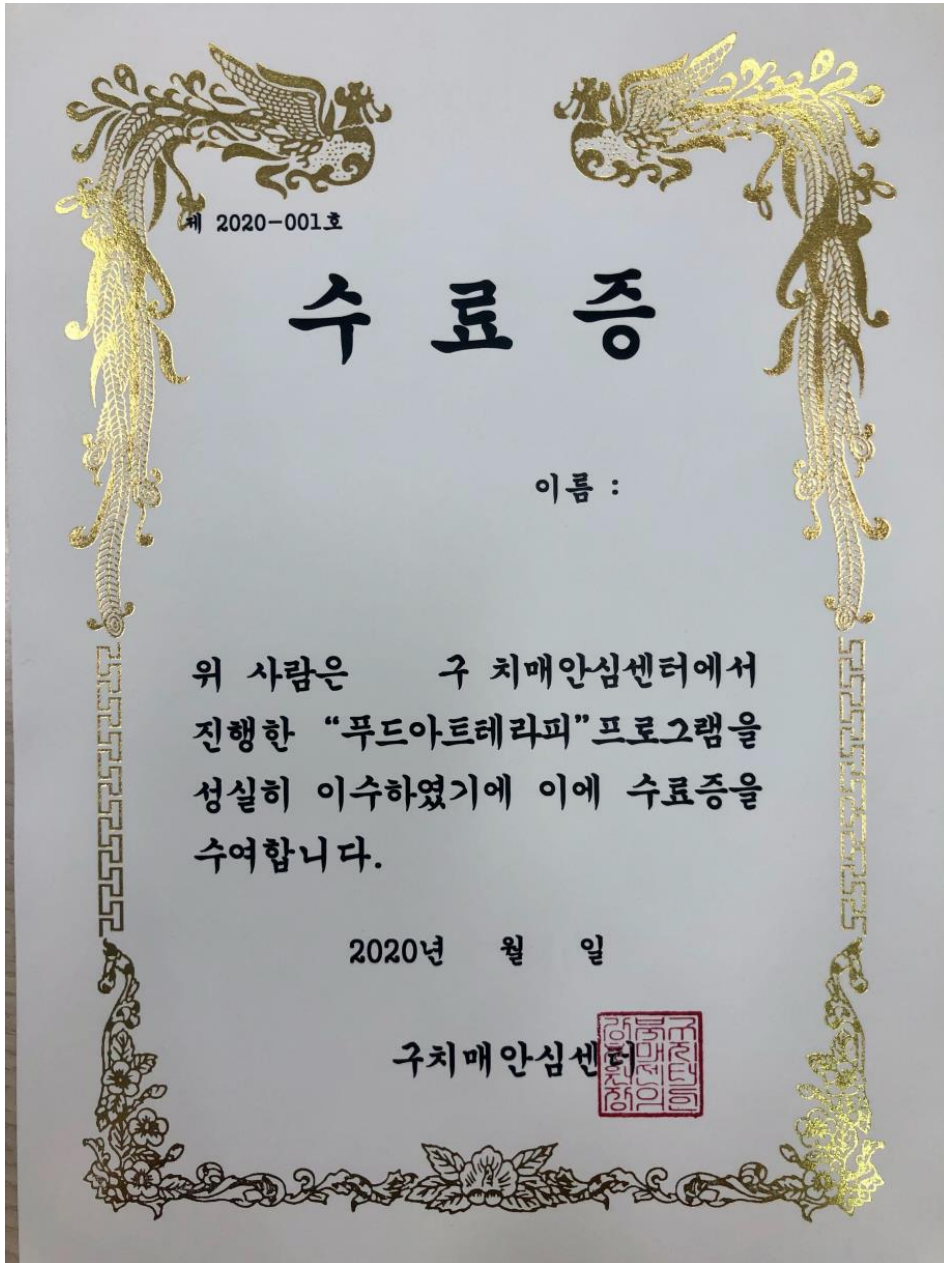 제 2020-001호
수 료 증
이름 :
위 사람은 구 치매안심센터에서
진행한 “푸드아트테라피”프로그램을
성실히 이수하였기에 이에 수료증을
수여합니다.
2020년 월 일
구치매안심센터